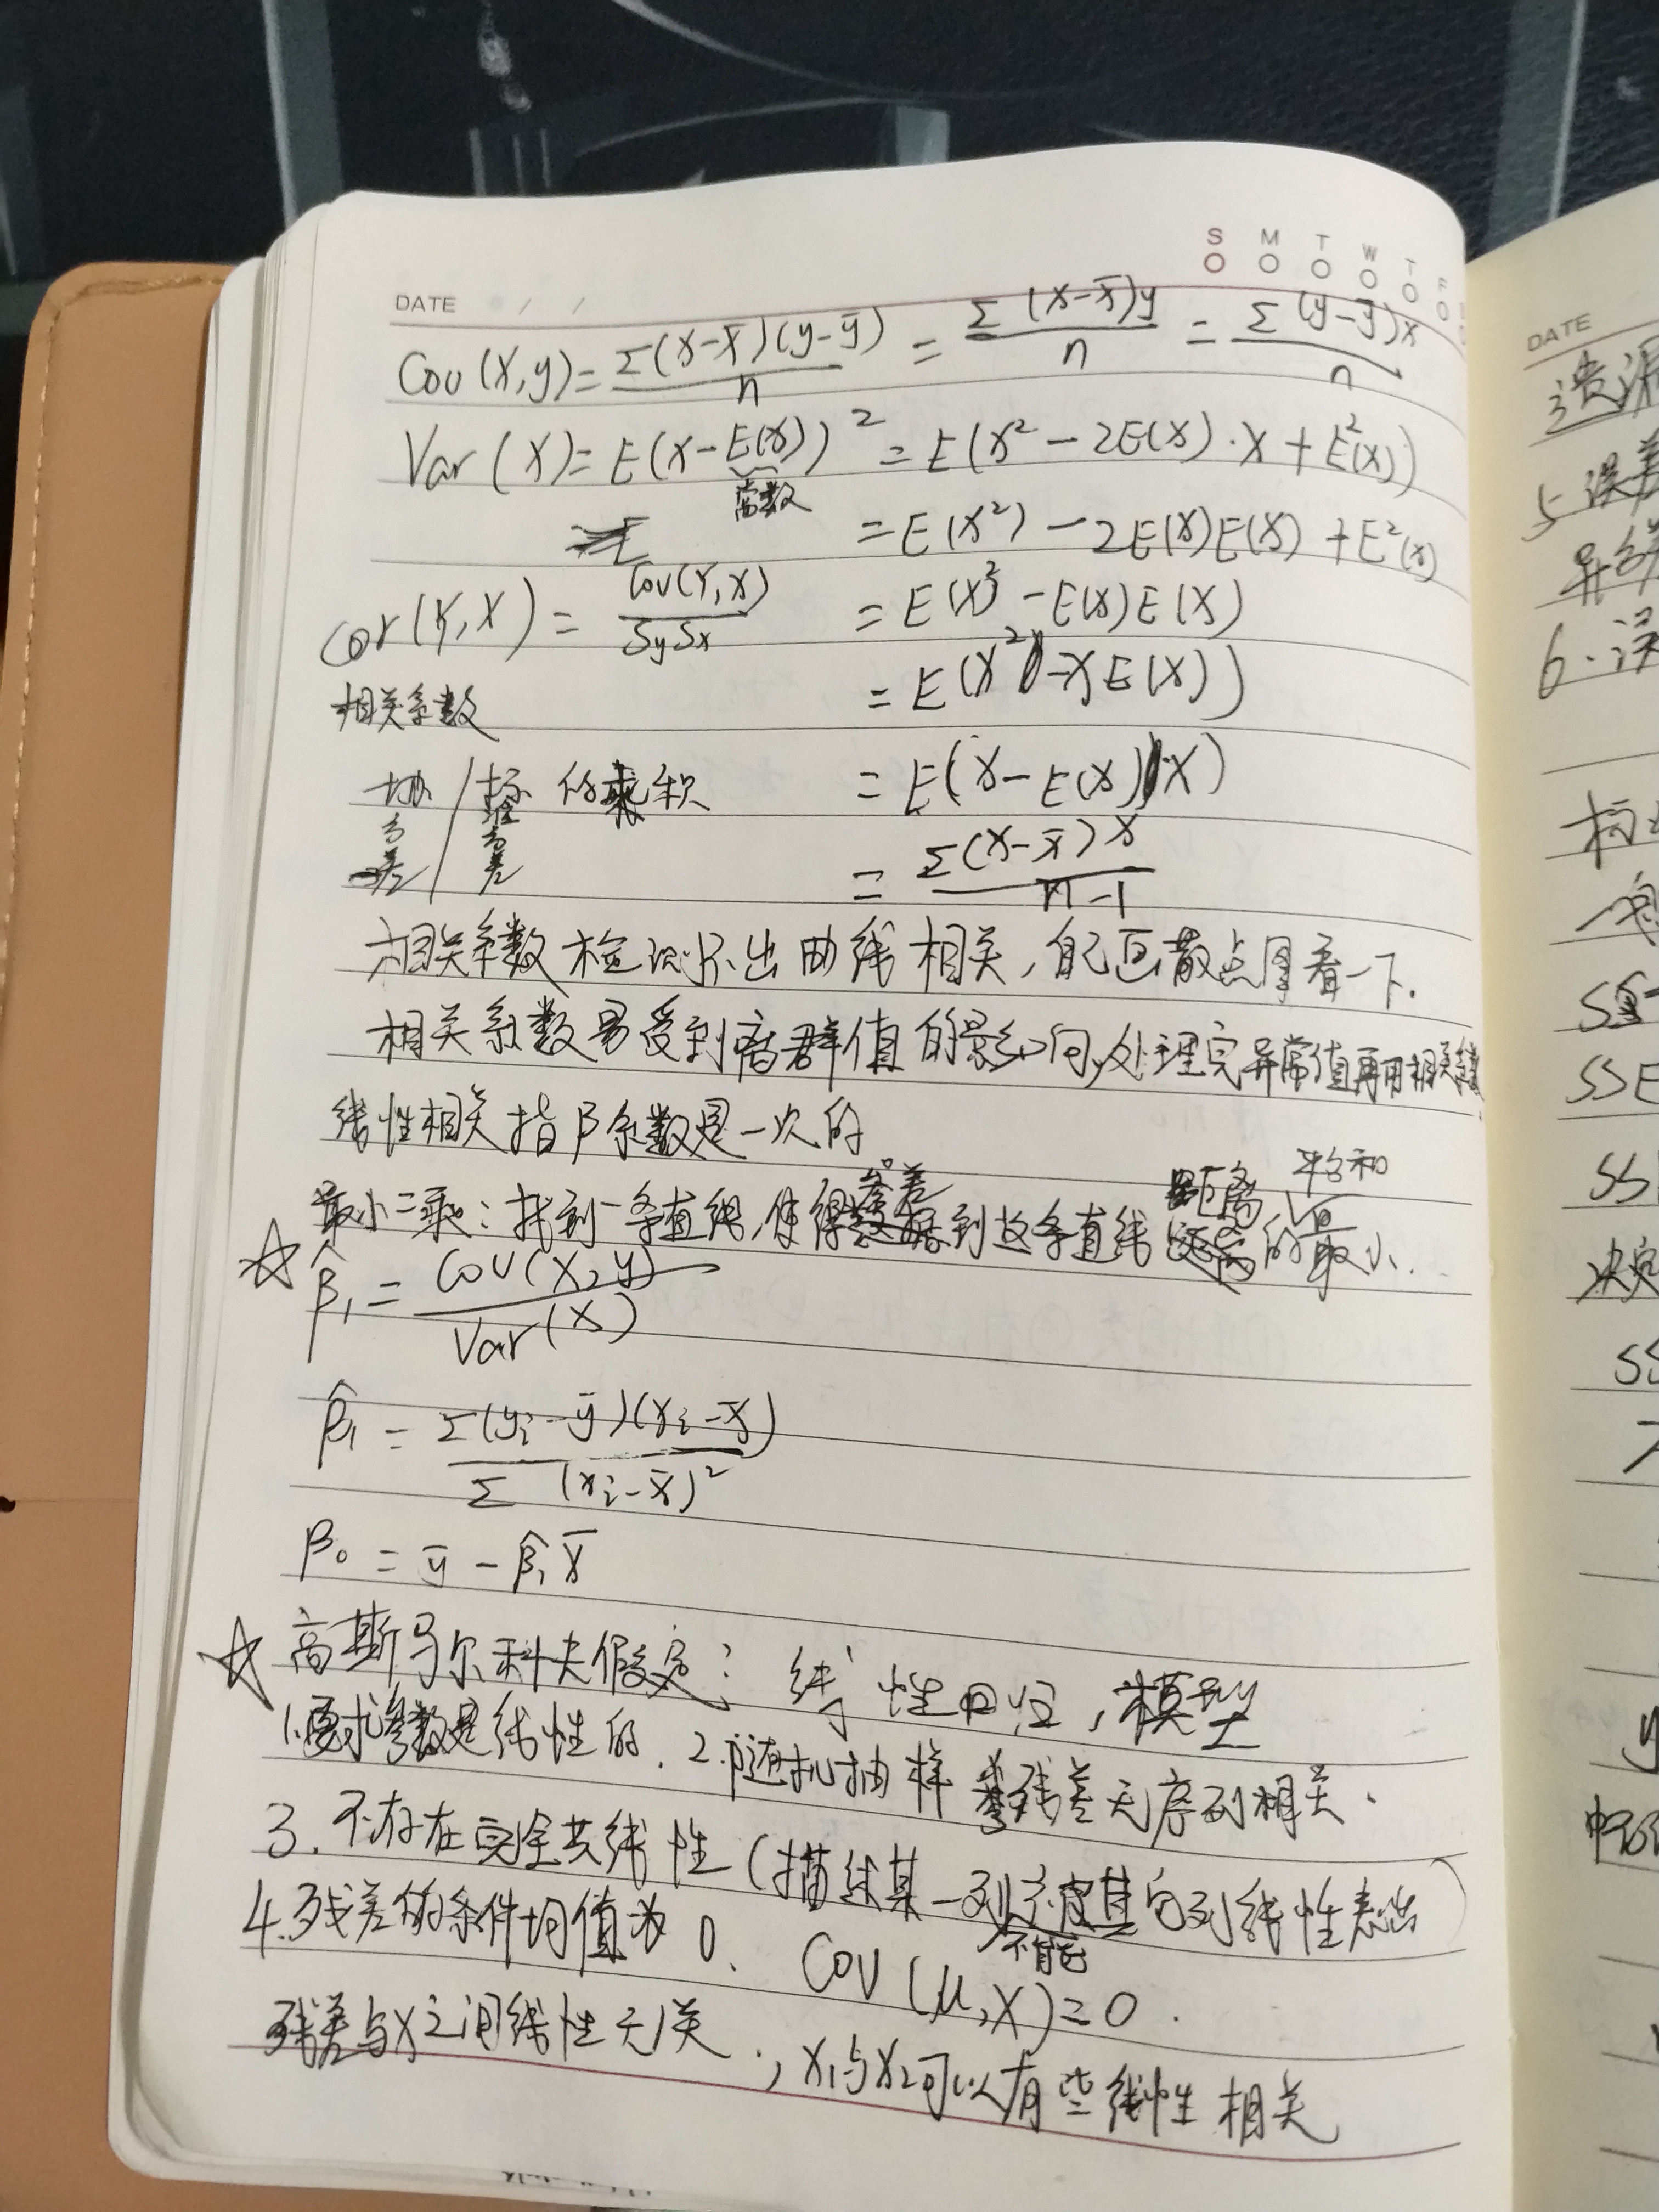 S M T W T F
DATE / /
Cov(X,y)=Σ(x-x̄)(y-ȳ)/n = Σ(x-x̄)y/n = Σ(y-ȳ)x/n
Var(X)=E(x-E(x))²=E(x²-2E(x)·X+E²(x))
常数
=E(x²)-2E(x)E(x)+E²(x)
Cor(Y,X)=Cov(Y,X)/SySx
=E(X²)-E(x)E(x)
相关系数
=E(X²-XE(X))
协方差/标准方差的乘积
=E(x-E(x))·X)
=Σ(x-x̄)x/n-1
相关系数检测不出曲线相关,自己画散点图看一下.
相关系数易受到离群值的影响,处理完异常值再用相关系数
线性相关指β系数是一次的
最小二乘:找到一条直线,使得残差到这条直线距离平方和的最小.
☆ β̂₁=Cov(X,y)/Var(X)
β̂₁=Σ(yi-ȳ)(xi-x̄)/Σ(xi-x̄)²
β₀=ȳ-β̂₁x̄
☆ 高斯马尔科夫假定:线性回归,模型
1.要求参数是线性的. 2.随机抽样 残差无序列相关.
3.不存在完全共线性(描述某一列不能被其它列线性表出)
4.残差的条件均值为0. Cov(μ,X)=0.
残差与X之间线性无关.,X₁与X₂可以有些线性相关
DATE
遗漏
5.误差
异方差
6.误
SST
SSE
SS
决定
SS
y